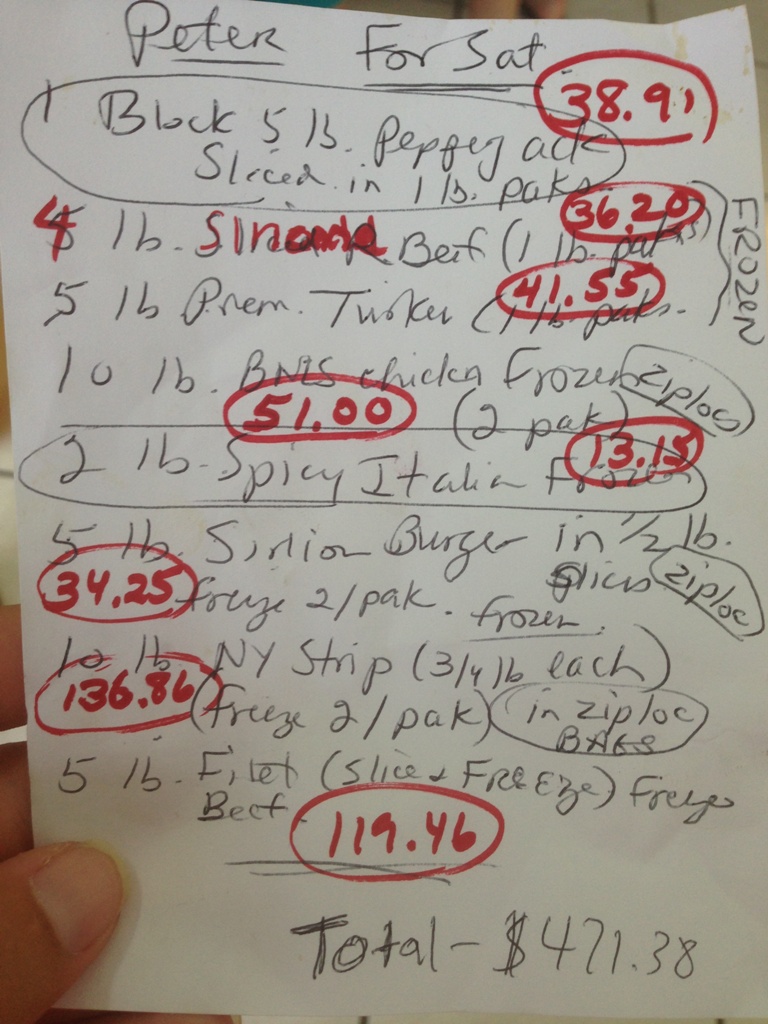 Peter For Sat.
38.91
1 Block 5 lb. Pepper jack
Sliced in 1 lb. paks
36.20
4 lb. Beef (1 lb. paks)
FROZEN
41.55
5 lb Prem. Turkey (1 lb. paks.
10 lb. BNLS chicken Frozen ziplocs
51.00 (2 pak)
13.15
2 lb. Spicy Italian Frozen
5 lb. Sirlion Burger in 1/2 lb.
slices ziploc
34.25 freeze 2/pak. frozen.
10 lb NY Strip (3/4 lb each)
136.86 (freeze 2/pak) in ziploc
BAGS
5 lb. Filet (slice & FREEZE) freeze
Beef
119.46
Total - $471.38